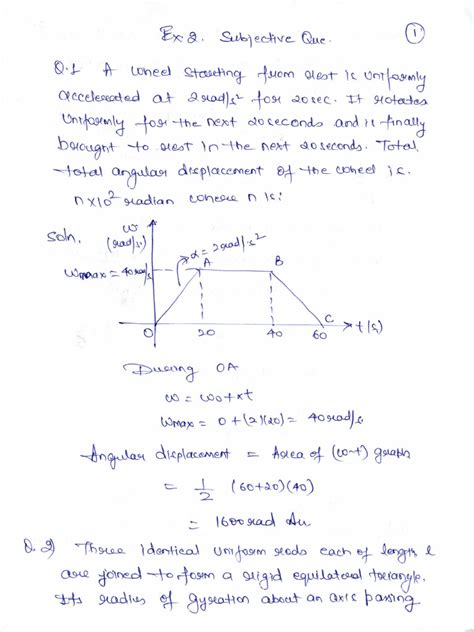 Ex 2. Subjective Que. 1
Q.1 A wheel starting from rest is uniformly
accelerated at 2 rad/s² for 20 sec. It rotates
uniformly for the next 20 seconds and is finally
brought to rest in the next 20 seconds. Total
total angular displacement of the wheel is.
n×10² radian where n is:
Soln.
ω
(rad/s)
α = 2 rad/s²
ωmax = 40 rad/s
A
B
C
O
20
40
60
t(s)
During OA
ω = ω0 + αt
ωmax = 0 + (2)(20) = 40 rad/s
Angular displacement = Area of (ω-t) graph
= 1/2 (60+20)(40)
= 1600 rad Au
Q.2) Three identical uniform rods each of length l
are joined to form a rigid equilateral triangle.
Its radius of gyration about an axis passing